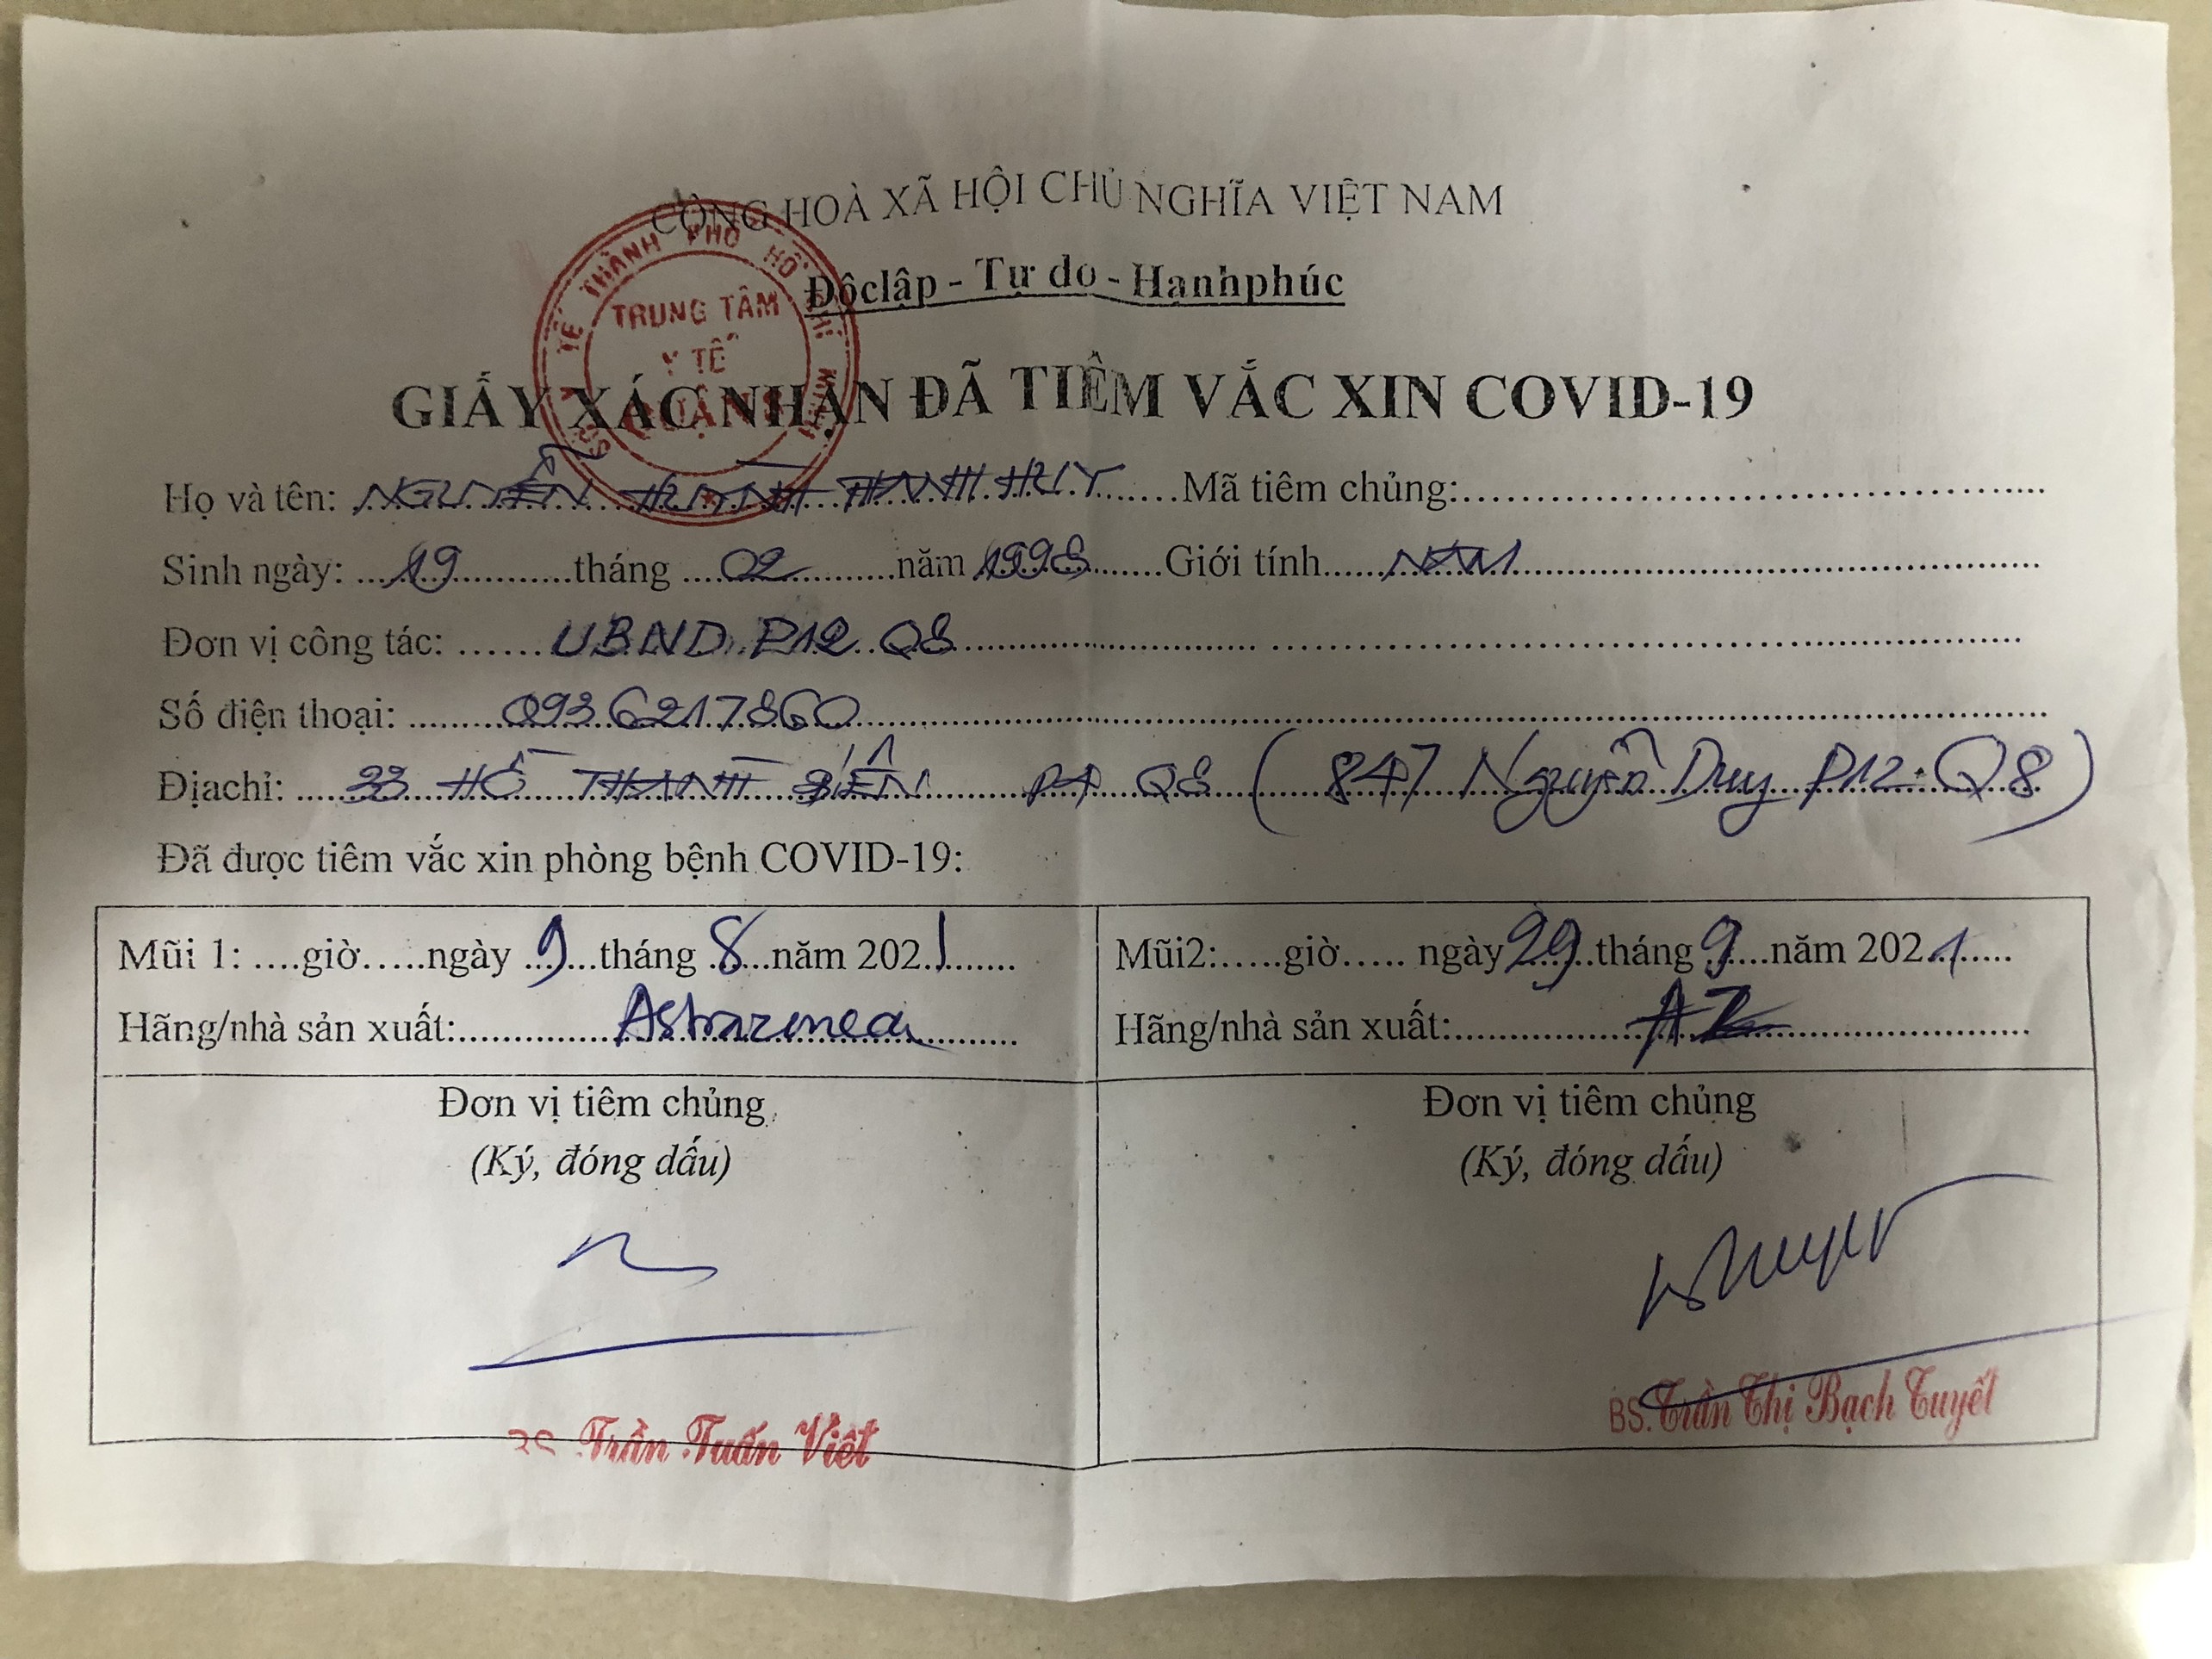 CỘNG HOÀ XÃ HỘI CHỦ NGHĨA VIỆT NAM
Độclập - Tự do - Hạnhphúc
SỞ Y TẾ THÀNH PHỐ HỒ CHÍ MINH
TRUNG TÂM
Y TẾ
QUẬN 8
GIẤY XÁC NHẬN ĐÃ TIÊM VẮC XIN COVID-19
Họ và tên: NGUYỄN HUỲNH THANH HUY Mã tiêm chủng:
Sinh ngày: 19 tháng 02 năm 1998 Giới tính NAM
Đơn vị công tác: UBND P12 Q8
Số điện thoại: 0936217860
Địachỉ: 33 HỒ THÀNH BIÊN P4 Q8 (847 Nguyễn Duy P12. Q8)
Đã được tiêm vắc xin phòng bệnh COVID-19:
Mũi 1: ....giờ.....ngày 9 tháng 8 năm 2021
Hãng/nhà sản xuất: Astrazeneca
Mũi2:.....giờ..... ngày 29 tháng 9 năm 2021
Hãng/nhà sản xuất: AZ
Đơn vị tiêm chủng
(Ký, đóng dấu)
BS. Trần Tuấn Việt
Đơn vị tiêm chủng
(Ký, đóng dấu)
BS. Trần Thị Bạch Tuyết